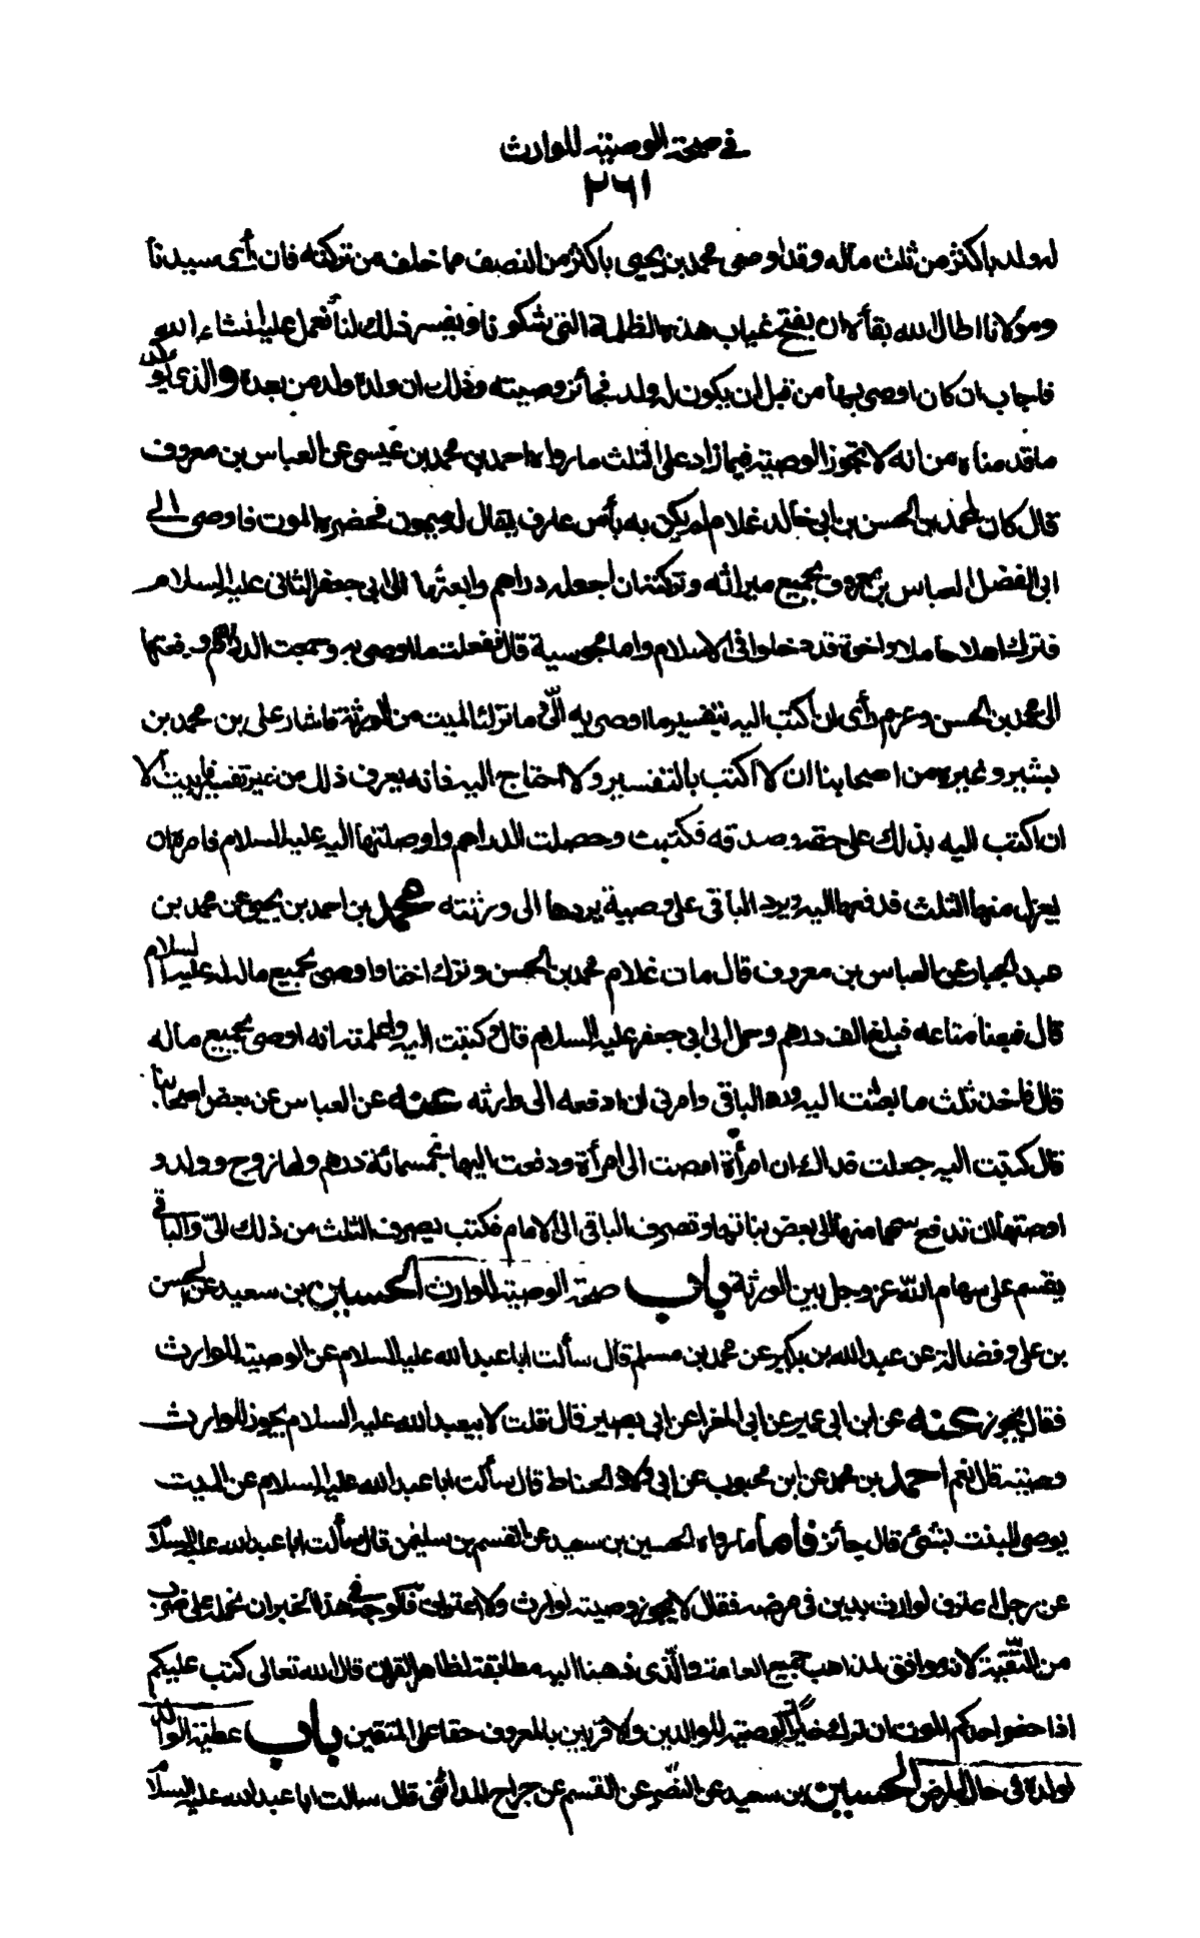 في صحة الوصية للوارث
٢٦١
له ولد باكثر من ثلث ماله وقد اوصى محمد بن يحيى باكثر من النصف مما خلف من تركته فان رأى سيدنا
ومولانا اطال الله بقاءه ان يفتح غياب هذه الظلمة التي شكونا ويفسر ذلك لنا نعمل عليه انشاء الله
فاجاب ان كان اوصى بها من قبل ان يكون له ولد فجائز وصيته وذلك ان ولده ولد من بعده والذي يؤكد
ما قدمناه من انه لا تجوز الوصية فيما زاد على الثلث ما رواه احمد بن محمد بن عيسى عن العباس بن معروف
قال كان لمحمد بن الحسن بن ابي خالد غلام لم يكن به بأس عارف يقال له ميمون فحضره الموت فاوصى الى
ابي الفضل العباس بن معروف بجميع ميراثه وتركته ان اجعله دراهم وابعث بها الى ابي جعفر الثاني عليه السلام
فترك اهلا حاملا واخوة قد دخلوا في الاسلام واما مجوسية قال ففعلت ما اوصى به وجمعت الدراهم ودفعتها
الى محمد بن الحسن وعزم رأى ان اكتب اليه بتفسير ما اوصى به الىّ وما ترك الميت من الورثة فاشار على بن محمد بن
بشير وغيره من اصحابنا ان لا اكتب بالتفسير ولا احتاج اليه فانه يعرف ذلك من غير تفسير فابيت الا
ان اكتب اليه بذلك على حقه وصدقه فكتبت وحصلت الدراهم واوصلتها اليه عليه السلام فامره ان
يعزل منها الثلث فدفعها اليه ويرد الباقي على وصيه يردها الى ورثته محمد بن احمد بن يحيى عن محمد بن
عبد الجبار عن العباس بن معروف قال مات غلام محمد بن الحسن وترك اختا واوصى بجميع ماله له عليه السلام
قال فبعنا متاعه فبلغ الف درهم وحمل الى ابي جعفر عليه السلام قال وكتبت اليه واعلمته انه اوصى بجميع ماله
قال فاخذ ثلث ما بعثت اليه ورد الباقي وامرني ان ادفعه الى وارثه عنه عن العباس عن بعض اصحابنا
قال كتبت اليه جعلت فداك ان امرأة اوصت الى امرأة ودفعت اليها خمسمائة درهم ولها زوج وولد و
اوصتها ان تدفع سهما منها الى بعض بناتها وتصرف الباقي الى الامام فكتب يصرف الثلث من ذلك الىّ والباقي
يقسم على سهام الله عز وجل بين الورثة باب صحة الوصية للوارث الحسين بن سعيد عن الحسن
بن على وفضالة عن عبد الله بن بكير عن محمد بن مسلم قال سألت ابا عبد الله عليه السلام عن الوصية للوارث
فقال تجوز عنه عن ابن ابي عمير عن ابي المغرا عن ابي بصير قال قلت لابي عبد الله عليه السلام يجوز للوارث
وصيته قال نعم احمد بن محمد عن ابن محبوب عن ابي ولاد الحناط قال سألت ابا عبد الله عليه السلام عن الميت
يوصى للبنت بشئ قال جائز فاما ما رواه الحسين بن سعيد عن القسم بن سليمن قال سألت ابا عبد الله عليه السلام
عن رجل اعترف لوارث بدين في مرضه فقال لا يجوز وصيته لوارث ولا اعتراف فالوجه في هذا الخبر ان نحمله على ضرب
من التقية لانه موافق لمذاهب جميع العامة والذي ذهبنا اليه مطابقة لظاهر القران قال الله تعالى كتب عليكم
اذا حضر احدكم الموت ان ترك خيرا الوصية للوالدين والاقربين بالمعروف حقا على المتقين باب عطية الوالد
لولده في حال المرض الحسين بن سعيد عن النضر عن القسم عن جراح المدائني قال سالت ابا عبد الله عليه السلام